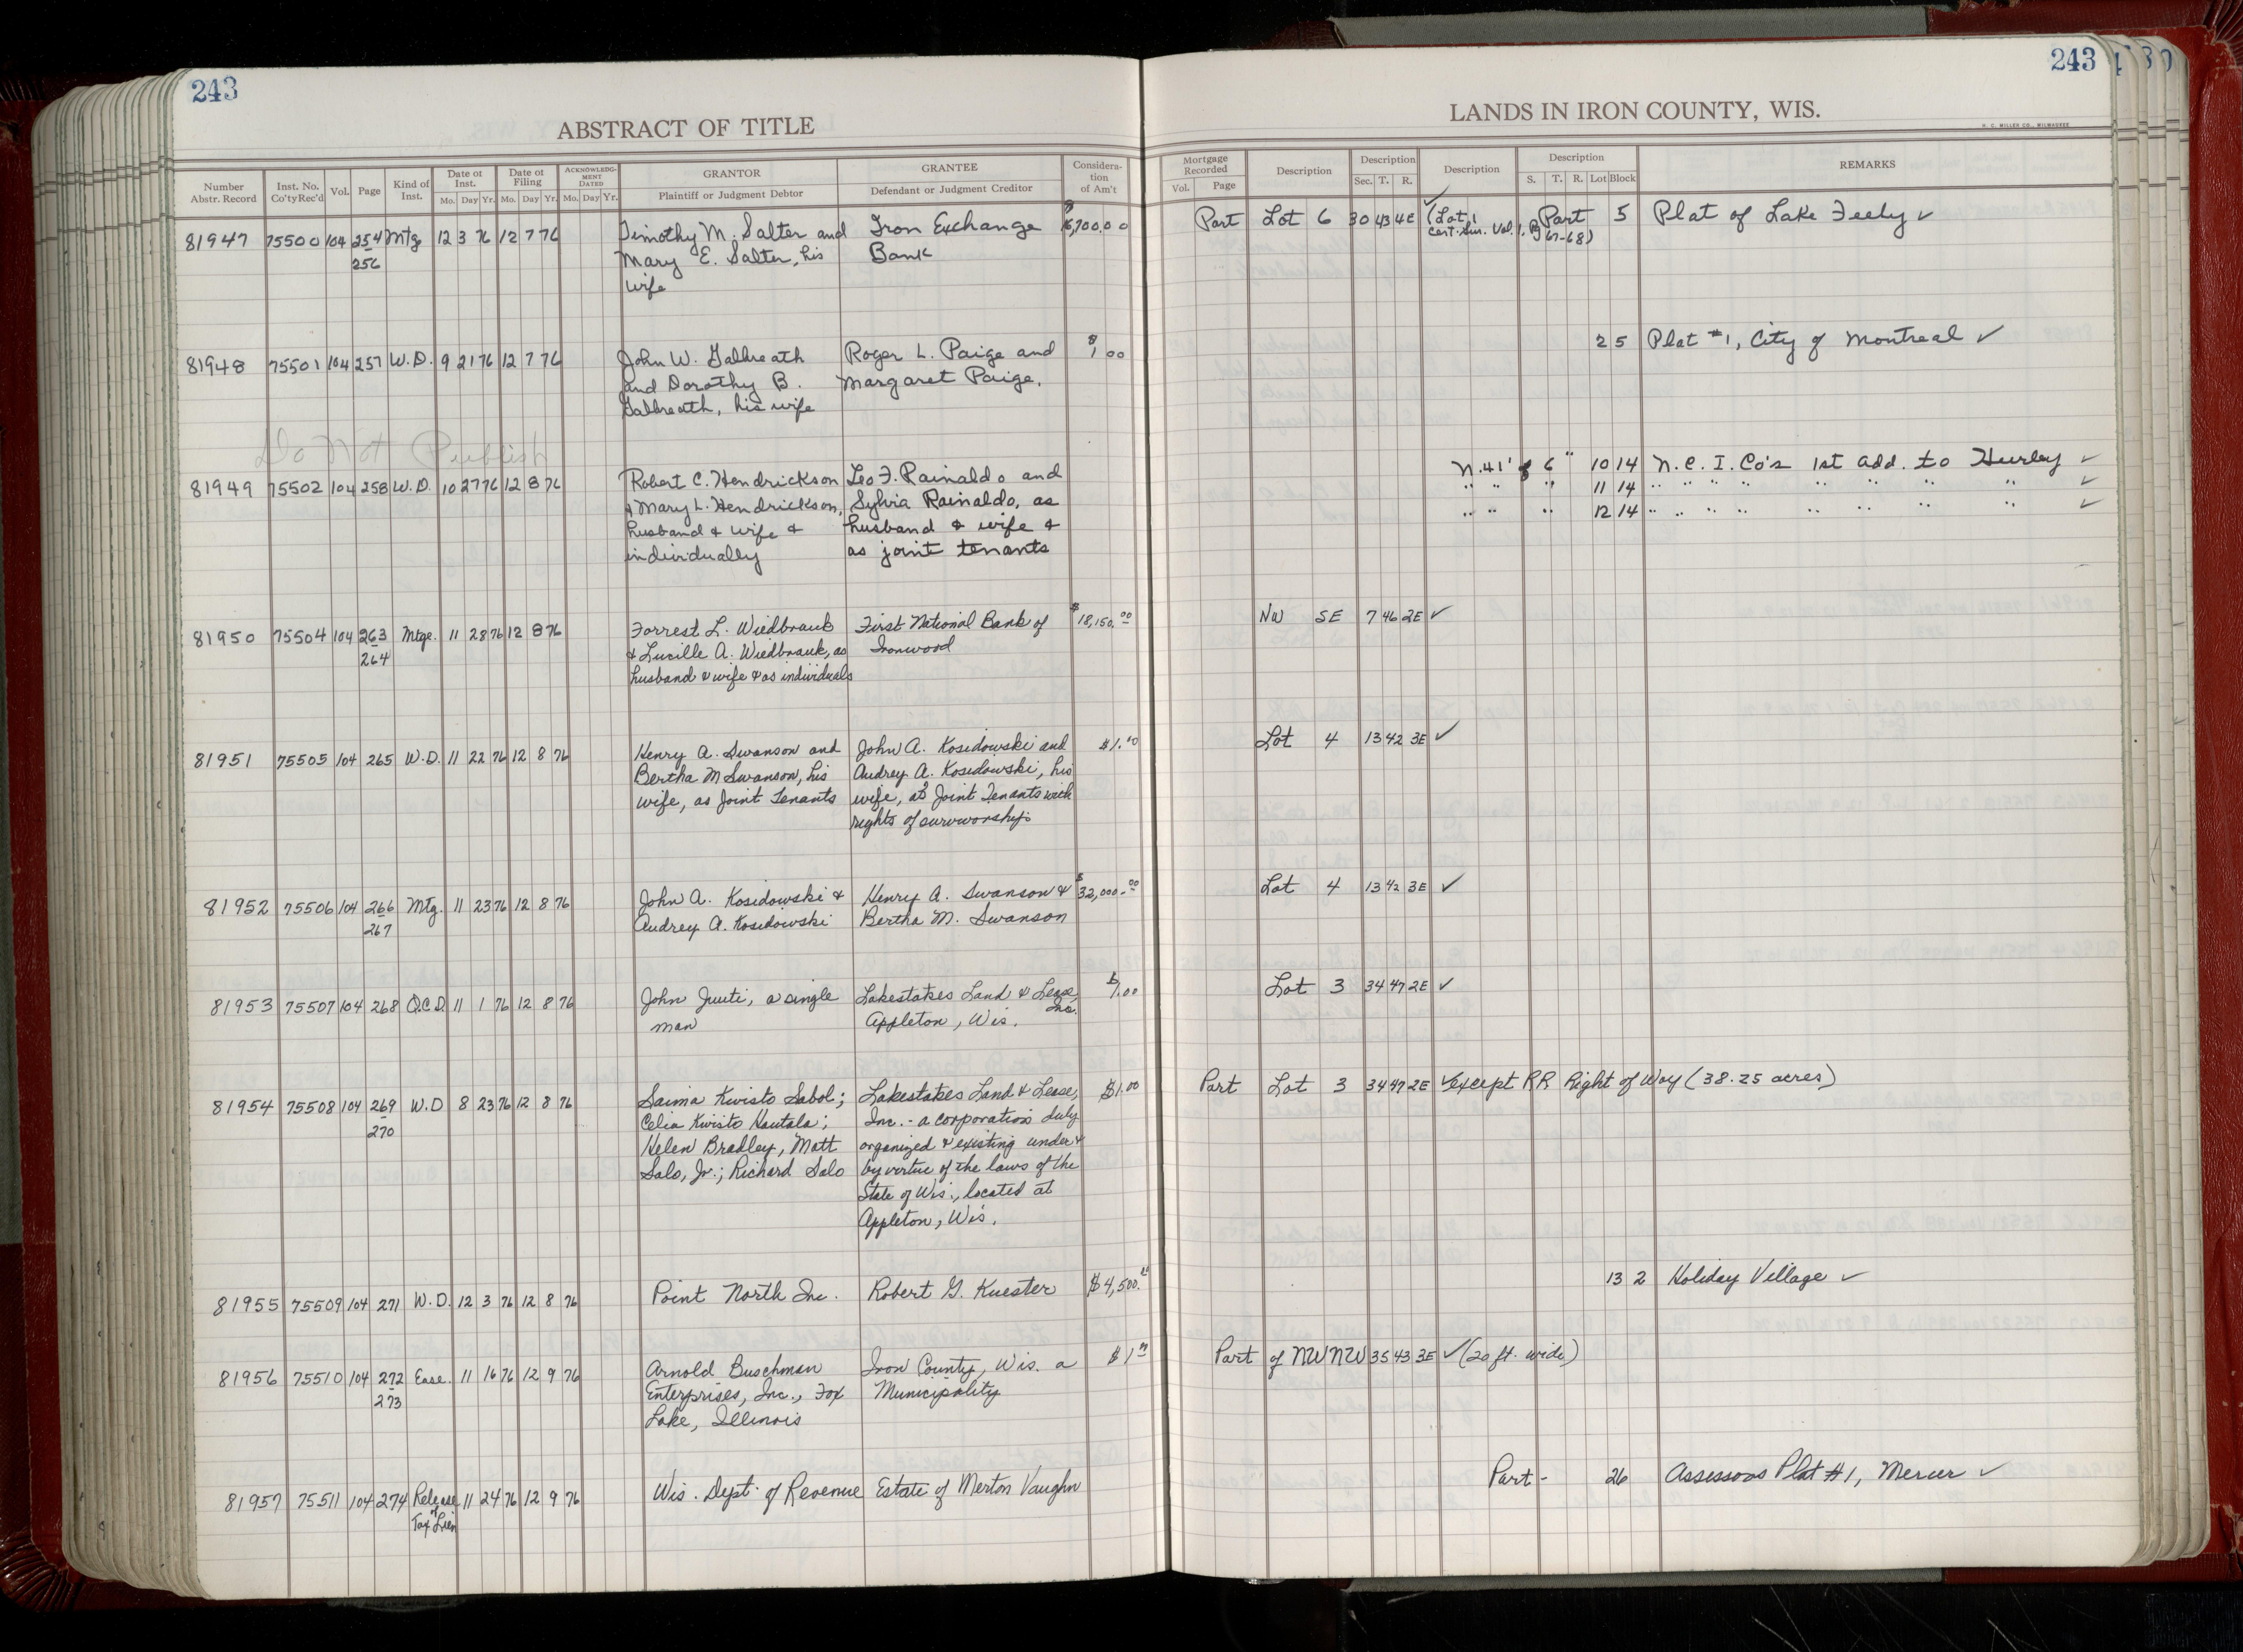 243
ABSTRACT OF TITLE
Number Abstr. Record | Inst. No. Co'ty Rec'd | Vol. | Page | Kind of Inst. | Date of Inst. Mo. Day Yr. | Date of Filing Mo. Day Yr. | ACKNOWLEDGMENT DATED Mo. Day Yr. | GRANTOR Plaintiff or Judgment Debtor | GRANTEE Defendant or Judgment Creditor | Consideration of Am't
81947 75500 104 254 Mtg 12 3 76 12 7 76 Timothy M. Salter and Iron Exchange
256 Mary E. Salter, his Bank
wife
81948 75501 104 257 W.D. 9 21 76 12 7 76 John W. Galbreath Roger L. Paige and $1 00
and Dorothy B. Margaret Paige.
Galbreath, his wife
Do Not Publish
81949 75502 104 258 W.D. 10 27 76 12 8 76 Robert C. Hendrickson Leo F. Rainaldo and
& Mary L. Hendrickson, Sylvia Rainaldo, as
husband & wife & husband & wife &
individually as joint tenants
81950 75504 104 263 Mtge. 11 28 76 12 8 76 Forrest L. Wiedbrauk First National Bank of $18,150.00
264 & Lucille A. Wiedbrauk, as Ironwood
husband & wife & as individuals
81951 75505 104 265 W.D. 11 22 76 12 8 76 Henry A. Swanson and John A. Kosidowski and $1.00
Bertha M Swanson, his Audrey A. Kosidowski, his
wife, as Joint Tenants wife, as Joint Tenants with
rights of survivorship
81952 75506 104 266 Mtg. 11 23 76 12 8 76 John A. Kosidowski & Henry A. Swanson & $32,000.00
267 Audrey A. Kosidowski Bertha M. Swanson
81953 75507 104 268 Q.C.D. 11 1 76 12 8 76 John Juuti, a single Lakestates Land & Lease, Inc. $1.00
man Appleton, Wis.
81954 75508 104 269 W.D 8 23 76 12 8 76 Saima Kivisto Sabol; Lakestates Land & Lease, $1.00
270 Celia Kivisto Hautala; Inc. - a corporation duly
Helen Bradley, Matt organized & existing under &
Salo, Jr.; Richard Salo by virtue of the laws of the
State of Wis., located at
Appleton, Wis.
81955 75509 104 271 W.D. 12 3 76 12 8 76 Point North Inc. Robert G. Kuester $4,500.
81956 75510 104 272 Ease. 11 16 76 12 9 76 Arnold Buschman Iron County, Wis. a $1
273 Enterprises, Inc., Fox Municipality
Lake, Illinois
81957 75511 104 274 Release 11 24 76 12 9 76 Wis. Dept. of Revenue Estate of Merton Vaughn
of
Tax Lien
243
LANDS IN IRON COUNTY, WIS.
H. C. MILLER CO., MILWAUKEE
Mortgage Recorded Vol. Page | Description | Description Sec. T. R. | Description | Description S. T. R. Lot Block | REMARKS
Part Lot 6 30 43 4E ✓ (Lot 1 Part 5 Plat of Lake Feely ✓
Cert. Sur. Vol. 1, P. 67-68)
2 5 Plat #1, City of Montreal ✓
N. 41' of 6" 10 14 N.C.I. Co's 1st Add. to Hurley ✓
" " " 11 14 " " " " " " " " ✓
" " " 12 14 " " " " " " " " ✓
NW SE 7 46 2E ✓
Lot 4 13 42 3E ✓
Lot 4 13 42 3E ✓
Lot 3 34 47 2E ✓
Part Lot 3 34 47 2E ✓ except RR Right of Way (38.25 acres)
13 2 Holiday Village ✓
Part of NW NW 35 43 3E ✓ (20 ft. wide)
Part - 26 Assessors Plat #1, Mercer ✓